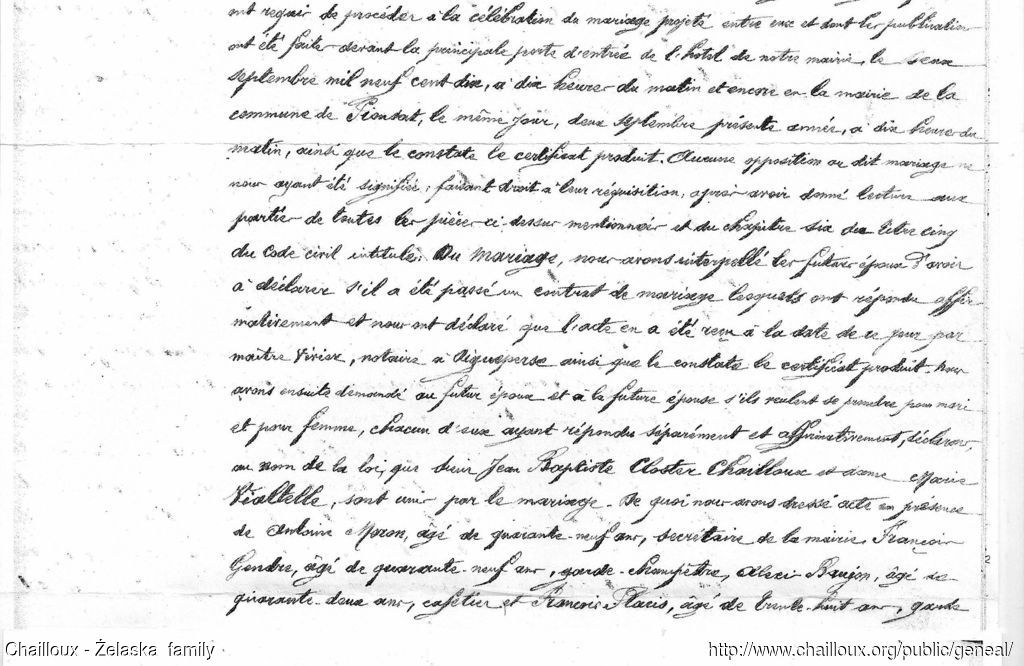 ont requis de procéder à la célébration du mariage projeté entre eux et dont les publications
ont été faites devant la principale porte d'entrée de l'hôtel de notre mairie, le deux
septembre mil neuf cent dix, à dix heures du matin et encore en la mairie de la
commune de Pionsat, le même jour, deux septembre présente année, à dix heures du
matin, ainsi que le constate le certificat produit. Aucune opposition au dit mariage ne
nous ayant été signifiée, faisant droit à leur réquisition, après avoir donné lecture aux
parties de toutes les pièces ci-dessus mentionnées et du chapitre six du titre cinq
du Code civil intitulé: Du Mariage, nous avons interpellé les futurs époux d'avoir
à déclarer s'il a été passé un contrat de mariage lesquels ont répondu affir-
mativement et nous ont déclaré que l'acte en a été reçu à la date de ce jour par
maître, notaire à Aigueperse ainsi que le constate le certificat produit. Nous
avons ensuite demandé au futur époux et à la future épouse s'ils veulent se prendre pour mari
et pour femme, chacun d'eux ayant répondu séparément et affirmativement, déclarons
au nom de la loi, que sieur Jean Baptiste Closter Chailloux et dame Marie
Vialtelle, sont unis par le mariage. De quoi nous avons dressé acte en présence
de Antoine Moron, âgé de quarante-neuf ans, secrétaire de la mairie, François
Gendre, âgé de quarante-neuf ans, garde-champêtre, Alexis Baujon, âgé de
quarante-deux ans, cafetier et François Placis, âgé de trente-huit ans, garde
2
Chailloux - Żelaska family
http://www.chailloux.org/public/geneal/